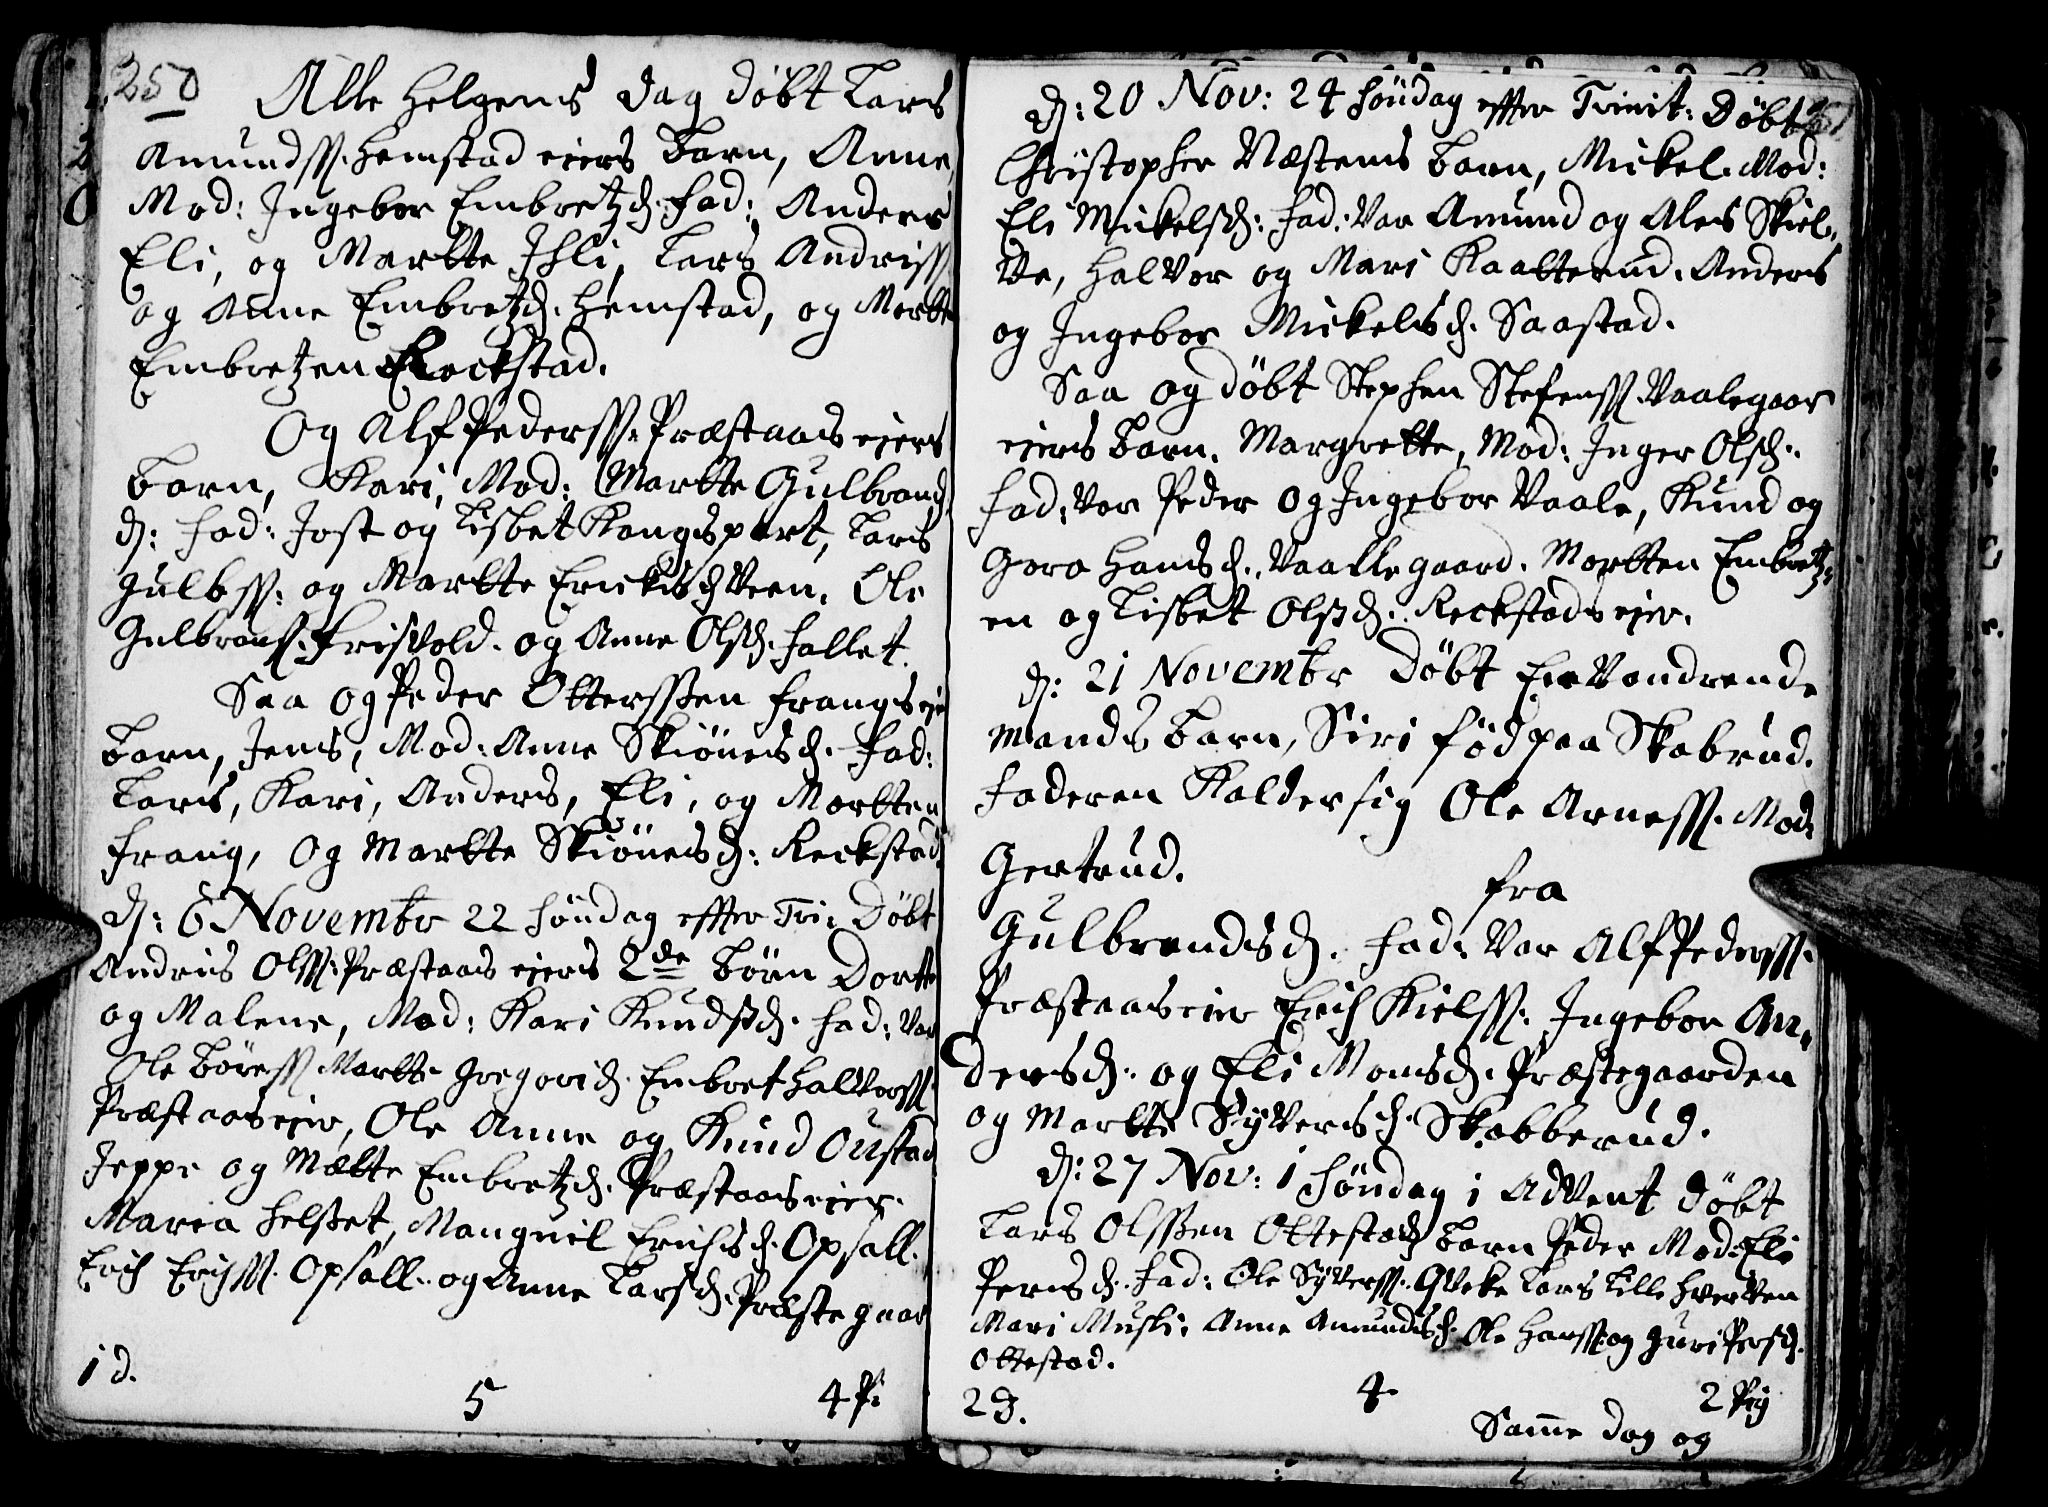 250
Alle Helgens Dag døbt Lars
Amundss. Hemstad eiers Barn, Anne,
Mod: Ingebor Embretzd. Fad: Anders
Eli, og Martte Ihli, Lars Andriss.
og Anne Embretzd. Hemstad, og Mortten
Embretzen Reckstad.
Og Alf Pederss. Præstaas eiers
Barn, Kari, Mod: Martte Gulbrand
d: Fad: Jost og Lisbet Kongspart, Lars
Gulbss: og Martte Ericksd Veen. Ole
Gulbranss. Frisvold. og Anne Olsd. Fallet.
Saa og Peder Otterssen Frangs eie
Barn, Jens, Mod: Anne Skiønesd. Fad:
Lars, Kari, Anders, Eli, og Mortten
Frang, Og Martte Skiønesd: Reckstad
d: 6 Novembr 22 Søndag effter Tri: Døbt
Andris Olss. Præstaas eiers 2de Børn Dorte
og Malene, Mod: Kari Knudsd. Fad: Var
Ole Børess. Martte Gregorid. Embret Halvorss.
Præstaaseier, Ole Anne og Knud Oustad
Jeppe og Mætte Embretzd. Præstaaseier.
Maria Helset, Mangnil Erichsd. Opsall.
Erich Erichss. Opsall. og Anne Larsd. Præstegaar
1 d.
5
4 Pi
d: 20 Nov: 24 Søndag effter Trinit: Døbt
Christopher Næstens Barn, Mickel. Mod:
Eli Mickelsd: Fad: Var Amund og Ales Skiel-
ve, Halvor og Mari Kaatterud. Anders
og Ingebor Mickelsd. Saastad.
Saa og døbt Stephen Stefenss. Vaalegaar
eiers Barn. Margrette, Mod: Inger Olsd.
Fad: Var Peder og Ingebor Vaale, Knud og
Goro Hansd. Vaallegaard. Mortten Embretz-
en og Lisbet Olsd. Reckstads eier.
d: 21 Novembr Døbt En Vandrende
Mands Barn, Siri fød paa Skabrud.
Faderen Kalder sig Ole Arness. Mod:
Gertrud.
fra
Gulbrandsd. Fad: Var Alf Pederss.
Præstaaseier Erich Kielss. Ingebor An-
dersd. og Eli Monsd. Præstegaarden
og Martte Syversd. Skabberud.
d: 27 Nov: 1 Søndag i Advent døbt
Lars Olssen Ottestad Barn Peder Mod: Eli
Persd. Fad: Ole Syverss. Qveke Lars Lille Hverven
Mari Musli. Anne Amundsd. Ole Hanss. og Guri Persd.
Ottestad.
2 d.
4.
2 Pig
Samme Dag og